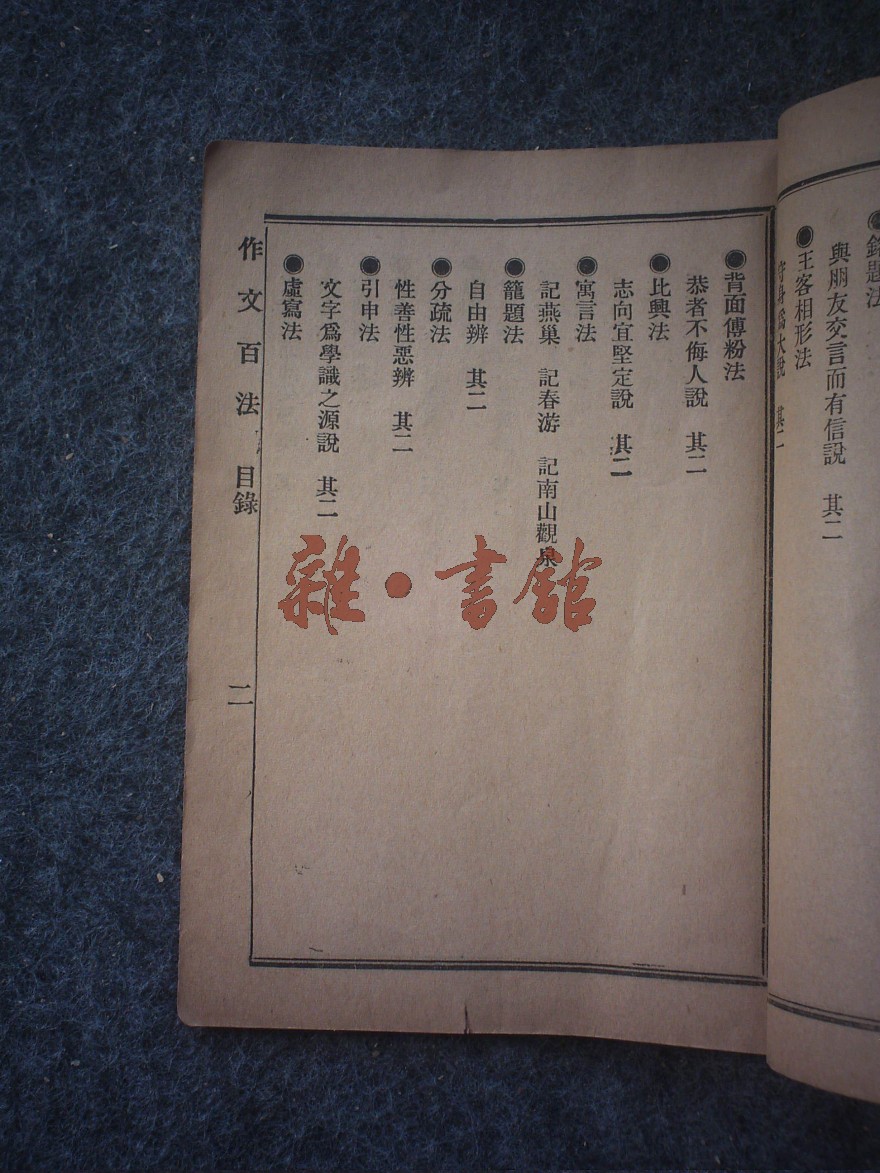 鉻題法
與朋友交言而有信說　其二
●主客相形法
守身爲大說　其二
●背面傅粉法
恭者不侮人說　其二
●比興法
志向宜堅定說　其二
●寓言法
記燕巢　記春游　記南山觀泉
●籠題法
自由辨　其二
●分疏法
性善性惡辨　其二
●引申法
文字爲學識之源說　其二
●虛寫法
作文百法　目錄　二
雜·書館